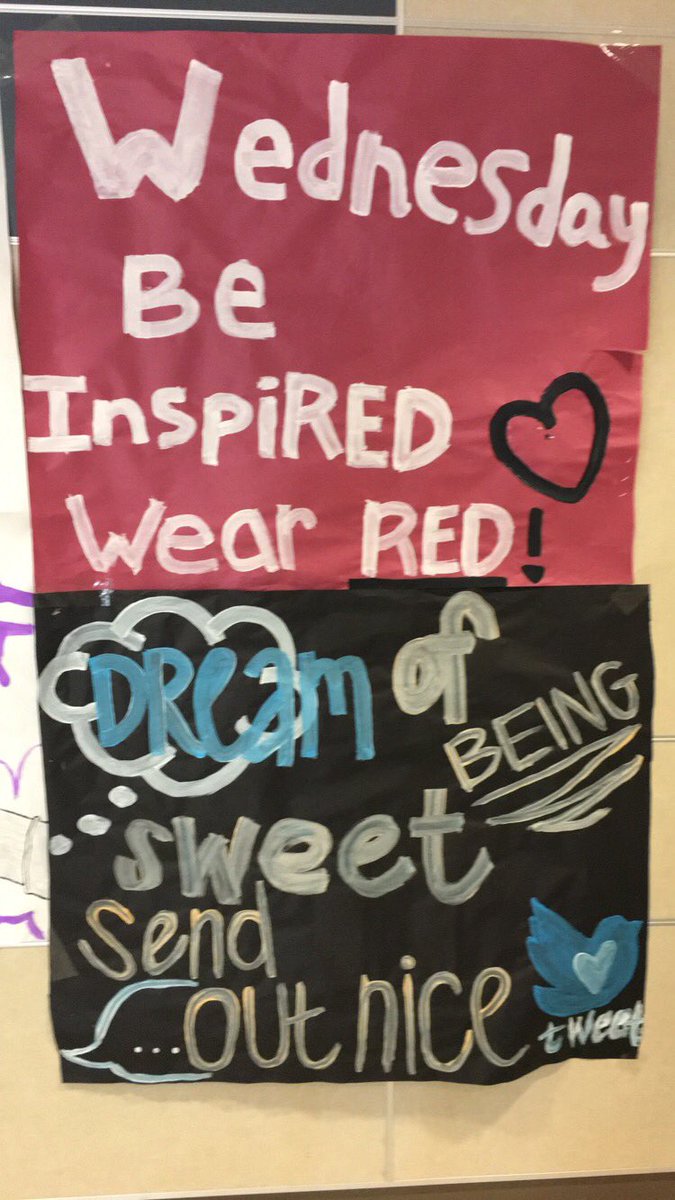 Wednesday
Be
InspiRED
Wear RED!
DReam of
BEING
sweet
send
...out nice
tweet